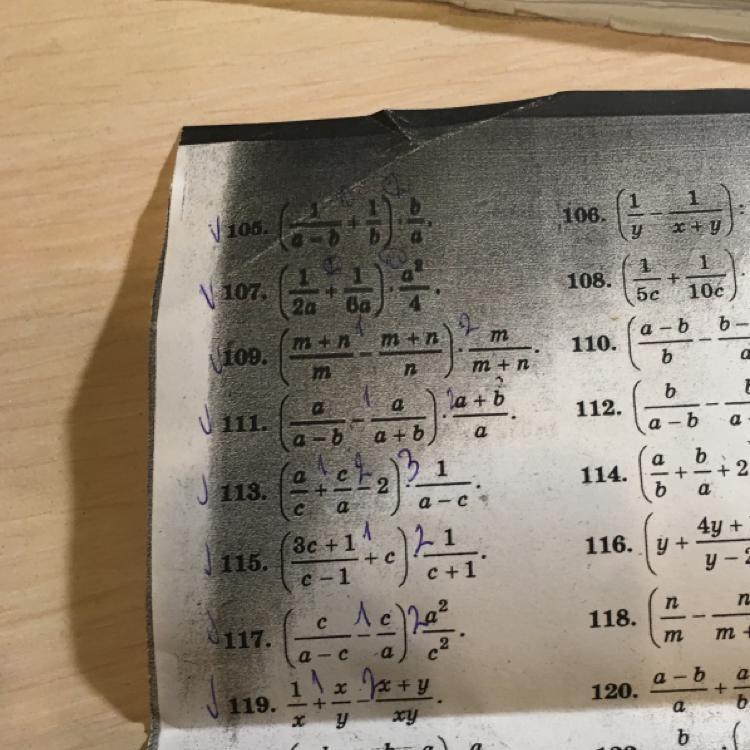 105. (1/(a − b) + 1/b) · b/a.
106. (1/y − 1/(x + y)) :
107. (1/2a + 1/6a) · a²/4.
108. (1/5c + 1/10c) ·
109. ((m + n)/m − (m + n)/n) · m/(m + n).
110. ((a − b)/b − (b −
111. (a/(a − b) − a/(a + b)) · (a + b)/a.
112. (b/(a − b) −
113. (a/c + c/a − 2) · 1/(a − c).
114. (a/b + b/a + 2
115. ((3c + 1)/(c − 1) + c) · 1/(c + 1).
116. (y + (4y +)/(y − 2
117. (c/(a − c) − c/a) · a²/c².
118. (n/m − n/(m +
119. 1/x + x/y − (x + y)/xy.
120. (a − b)/a + a/b